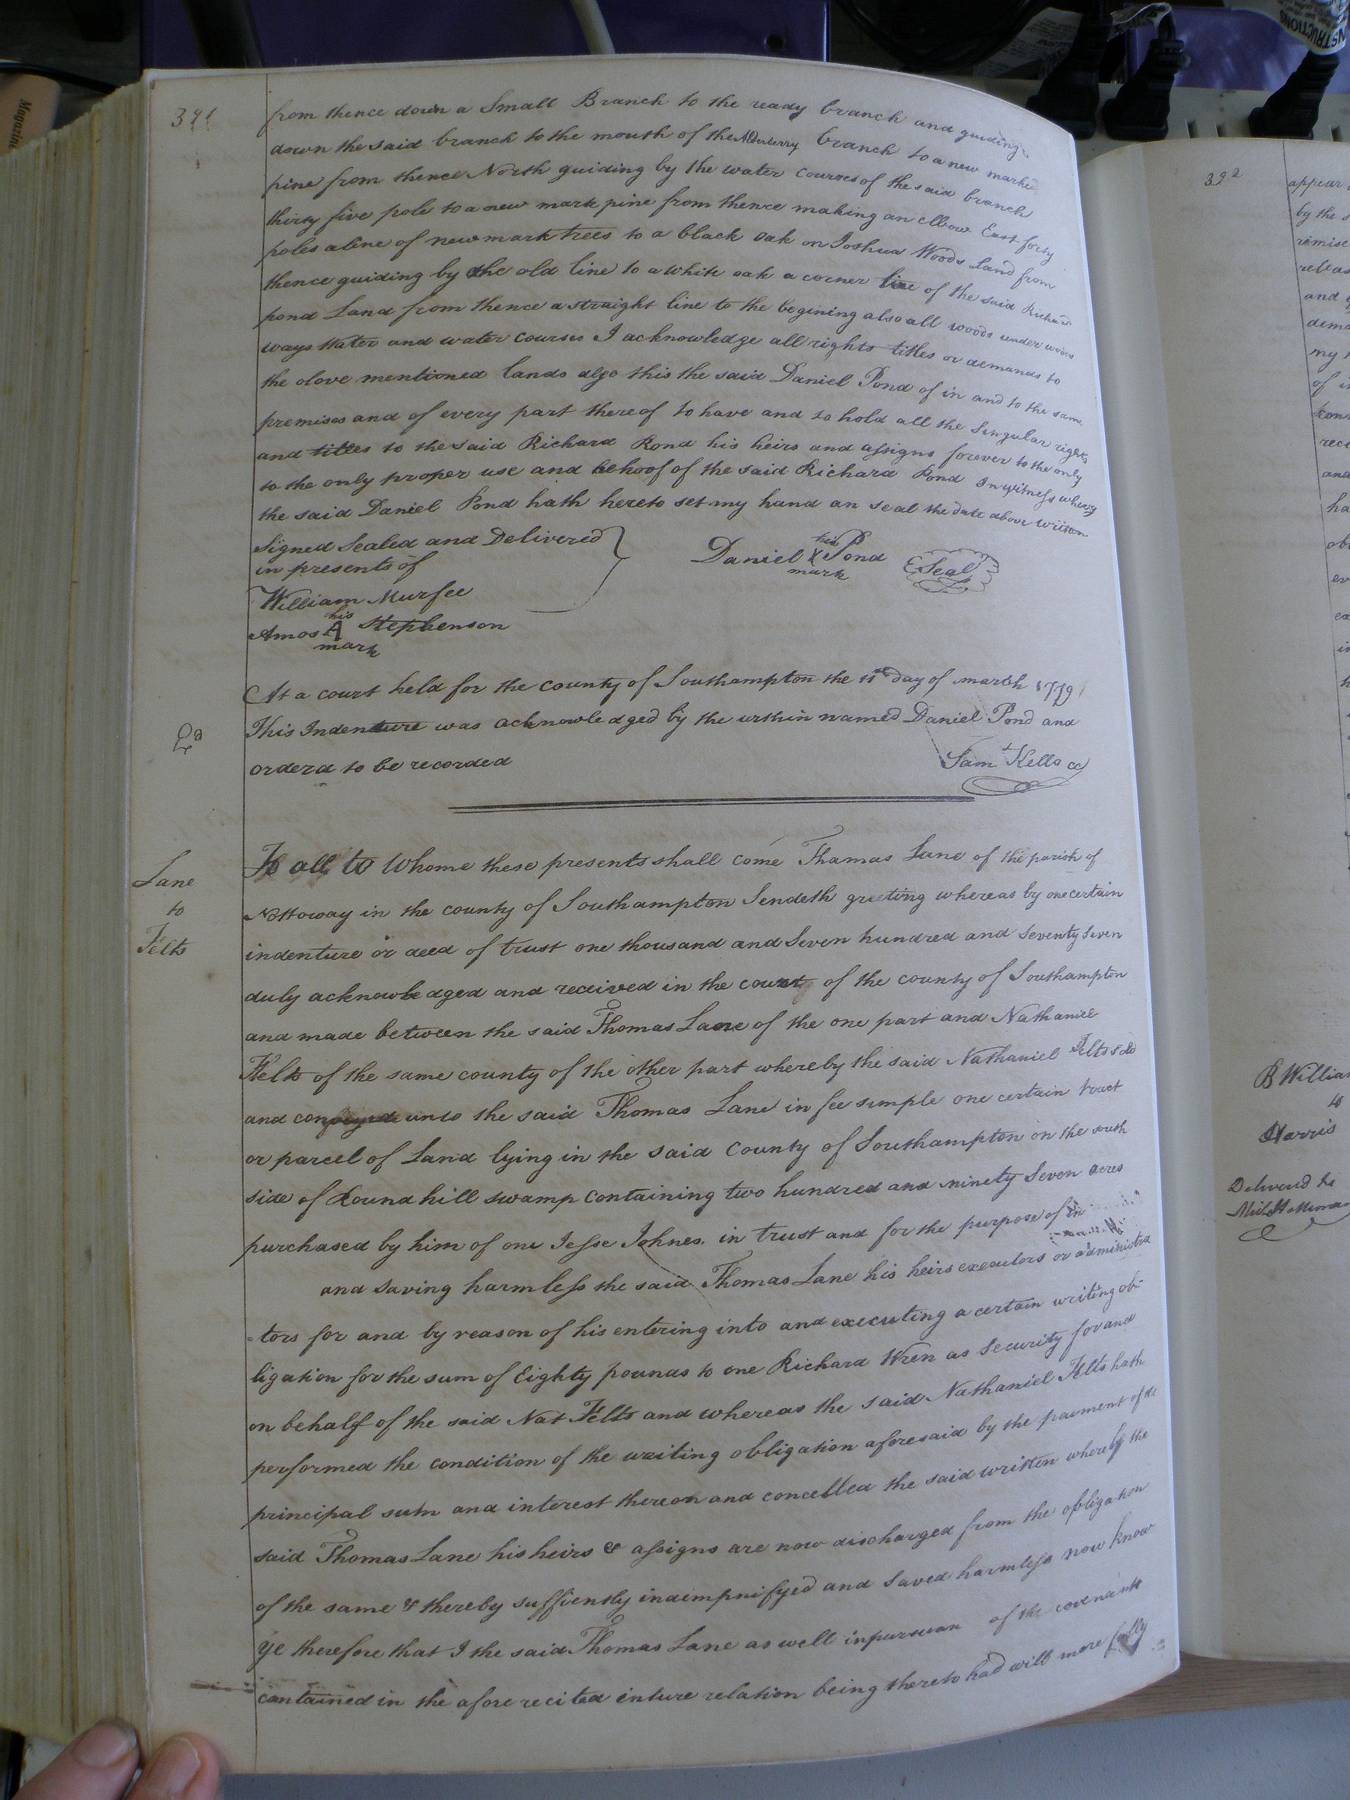 391
from thence down a Small Branch to the ready branch and guiding
down the said branch to the mouth of the branch to a new marked
pine from thence North guiding by the water courses of the said branch
thirty five pole to a new mark pine from thence making an elbow East forty
poles a line of new mark trees to a black oak on Joshua Woods Land from
thence guiding by the old line to a white oak a corner line of the said Richard
pond Land from thence a straight line to the begining also all woods under woods
ways Water and water courses I acknowledge all rights titles or demands to
the above mentioned lands also this the said Daniel Pond of in and to the same
premises and of every part thereof to have and to hold all the Singular rights
and titles to the said Richard Pond his heirs and assigns forever to the only
to the only proper use and behoof of the said Richard Pond In witness whereof
the said Daniel Pond hath hereto set my hand an seal the date above written
Signed Sealed and Delivered
in presents of
Daniel his X mark Pond Seal
William Murfee
Amos his A mark Stephenson
At a court held for the county of Southampton the 11th day of march 1779
This Indenture was acknowledged by the within named Daniel Pond and
orderd to be recorded
Saml Kello cc
Lane
to
Felts
To all to Whome these presents shall come Thomas Lane of the parish of
Nottoway in the county of Southampton Sendeth greeting whereas by one certain
indenture or deed of trust one thousand and Seven hundred and Seventy Seven
duly acknowledged and received in the court of the county of Southampton
and made between the said Thomas Lane of the one part and Nathaniel
Felts of the same county of the other part whereby the said Nathaniel Felts
and unto the said Thomas Lane in fee simple one certain tract
or parcel of Land lying in the said County of Southampton on the south
side of Round hill swamp containing two hundred and ninety Seven acres
purchased by him of one Jesse Johnes in trust and for the purpose of in
and saving harmless the said Thomas Lane his heirs executors or administra
-tors for and by reason of his entering into and executing a certain writing ob-
ligation for the sum of Eighty pounds to one Richard Wren as Security for and
on behalf of the said Nat Felts and whereas the said Nathaniel Felts hath
performed the condition of the writing obligation aforesaid by the paiment of the
principal sum and interest thereon and concelled the said written whereby the
said Thomas Lane his heirs & assigns are now discharged from the obligation
of the same & thereby suffiently indempnifyed and Saved harmless now know
ye therefore that I the said Thomas Lane as well in of the covenants
contained in the afore recited enture relation being thereto had will more fully
392
appear
by the
and
of
B William
to
Harris
Deliverd to
Magazine